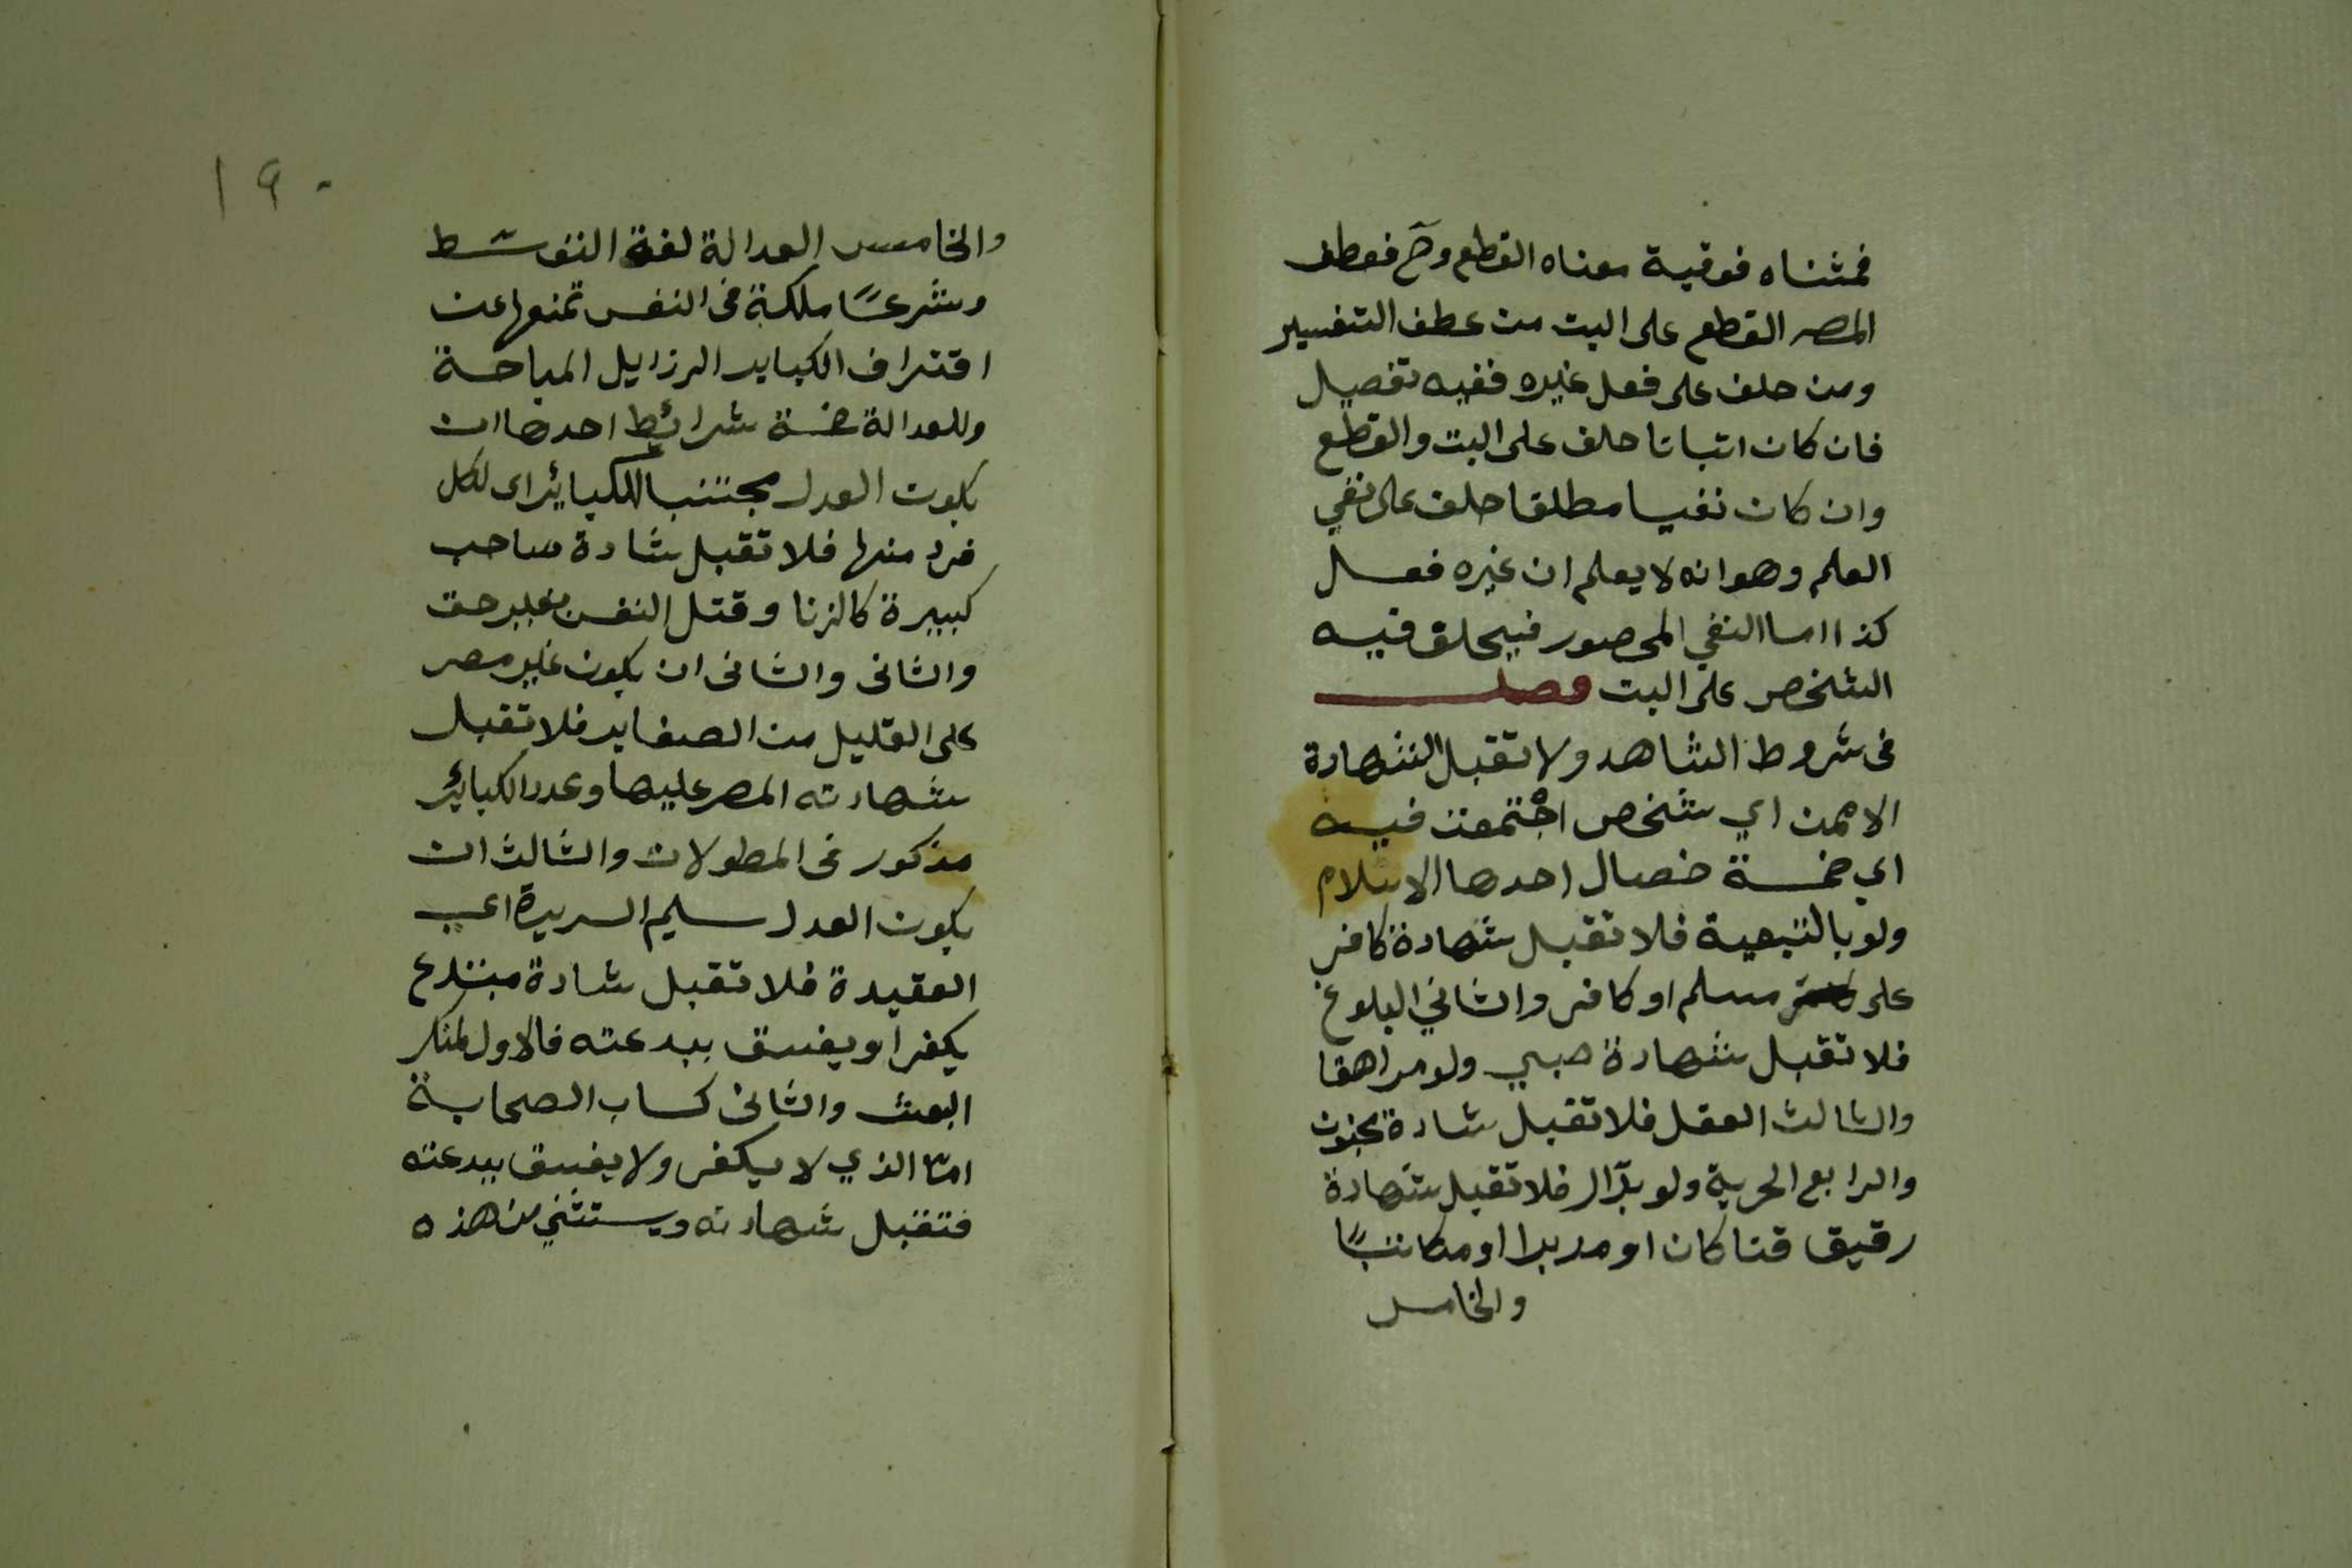 فمثناه فوقية معناه القطع وح فعطف
المصـ القطع على البت من عطف التفسير
ومن حلف على فعل غيره ففيه تفصيل
فان كان اثباتا حلف على البت والقطع
وان كان نفيا مطلقا حلف على نفي
العلم وهو انه لا يعلم ان غيره فعل
كذا اما النفي المحصور فيحلف فيه
الشخص على البت فصل
فى شروط الشاهد ولا تقبل الشهادة
الا ممن اي شخص اجتمعت فيه
اي خمسة خصال احدها الاسلام
ولو بالتبعية فلا تقبل شهادة كافر
على مسلم او كافر والثاني البلوغ
فلا تقبل شهادة صبي ولو مراهقا
والثالث العقل فلا تقبل شادة مجنون
والرابع الحرية ولو بدار فلا تقبل شهادة
رقيق قنا كان او مدبرا او مكاتبًا
والخامس
١٩٠
والخامس العدالة لغة التوسط
وشرعًا ملكة فى النفس تمنعها عن
اقتراف الكباير الرذايل المباحة
وللعدالة خمسة شرائط احدها ان
يكون العدل مجتنبا للكبائر اى لكل
فرد منها فلا تقبل شادة صاحب
كبيرة كالزنا وقتل النفس بغير حق
والثانى والثانى ان يكون غير مصر
على القليل من الصغاير فلا تقبل
شهادته المصر عليها وعدد الكبائر
مذكور فى المطولات والثالث ان
يكون العدل سليم السريرة اى
العقيدة فلا تقبل شادة مبتدع
يكفر او يفسق ببدعته فالاول كمنكر
البعث والثانى كساب الصحابة
امّا الذي لا يكفر ولا يفسق ببدعته
فتقبل شهادته ويستثني من هذه